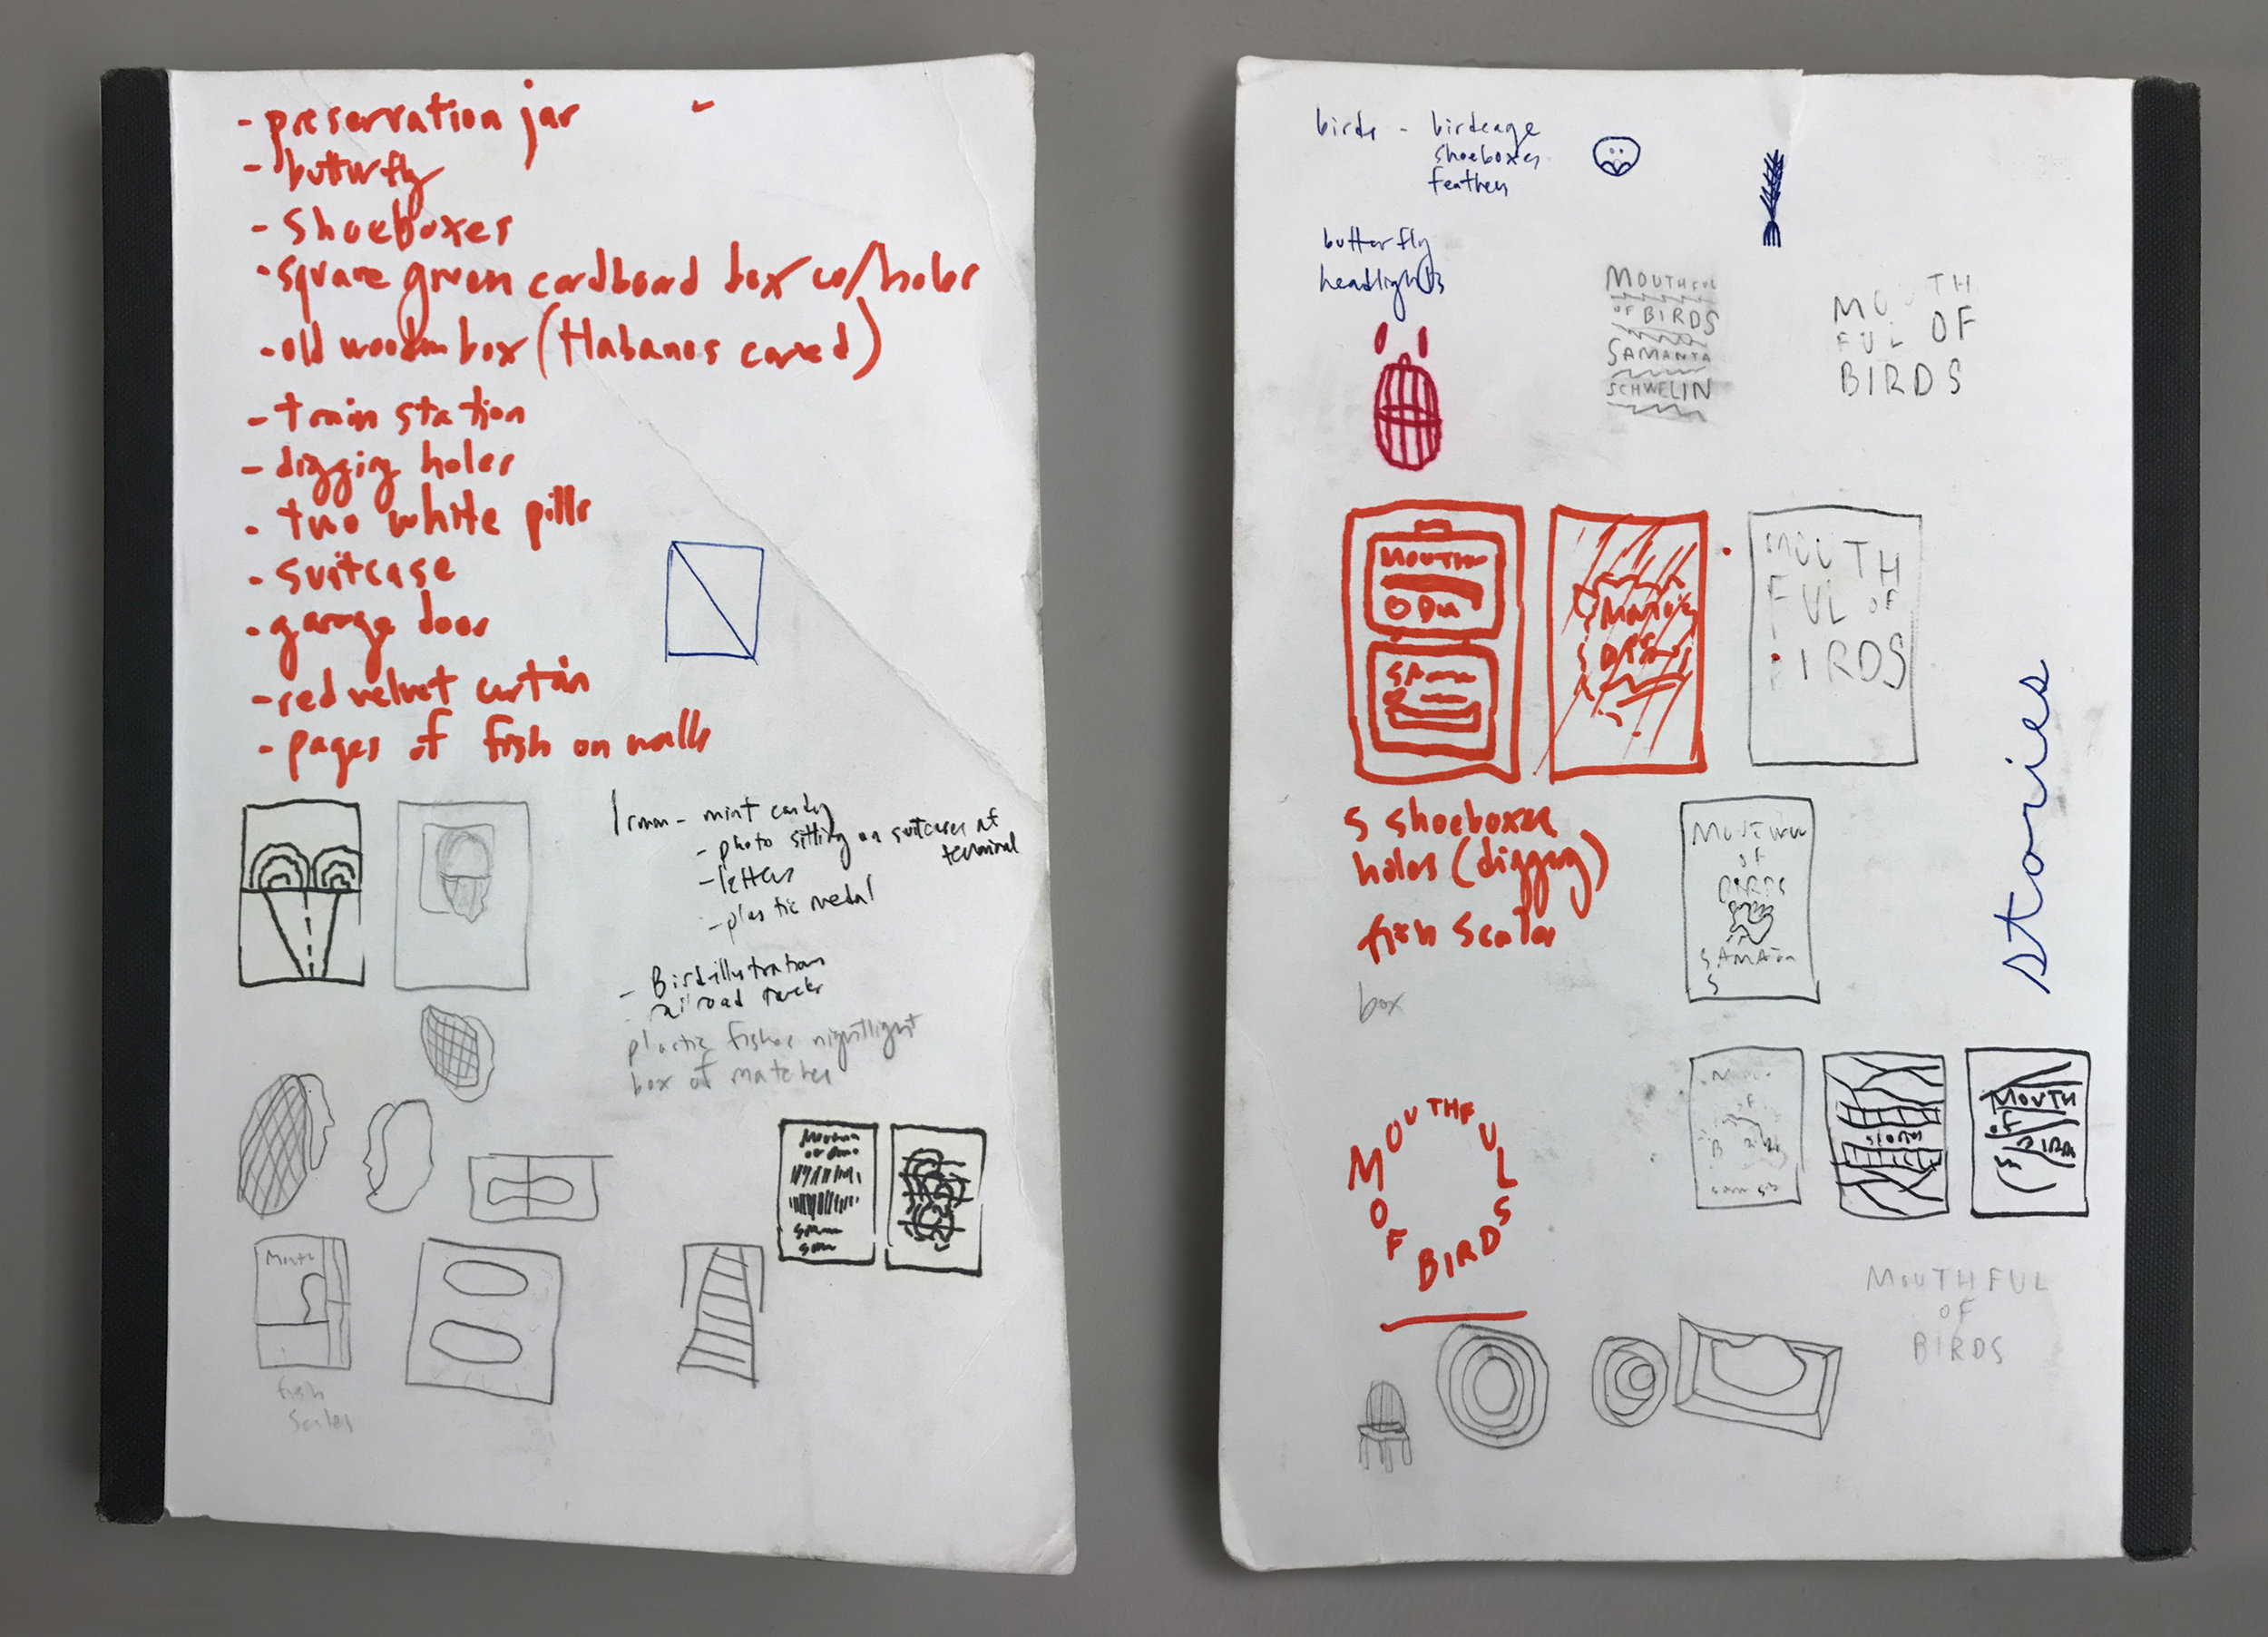 - preservation jar
- butterfly
- Shoeboxes
- square green cardboard box w/holes
- old wooden box (Habanos carved)
- train station
- digging holes
- two white pills
- suitcase
- garage door
- red velvet curtain
- pages of fish on walls
- mint candy
- photo sitting on suitcases at
terminal
- letters
- plastic medal
- Bird illustration
railroad tracks
plastic fisher nightlight
box of matches
Mouth
fish
scales
birds - birdcage
shoeboxes
feathers
butterfly
headlights
MOUTHFUL
OF BIRDS
SAMANTA
SCHWELIN
MOUTH
FUL OF
BIRDS
MOUTH
ODM
MOUTH
FUL OF
BIRDS
5 shoeboxes
holes (digging)
fish scales
box
OF
BIRDS
SAMAn
S
stories
stories
MOUTH
OF
MOUTHFUL
OF BIRDS
MOUTHFUL
OF
BIRDS